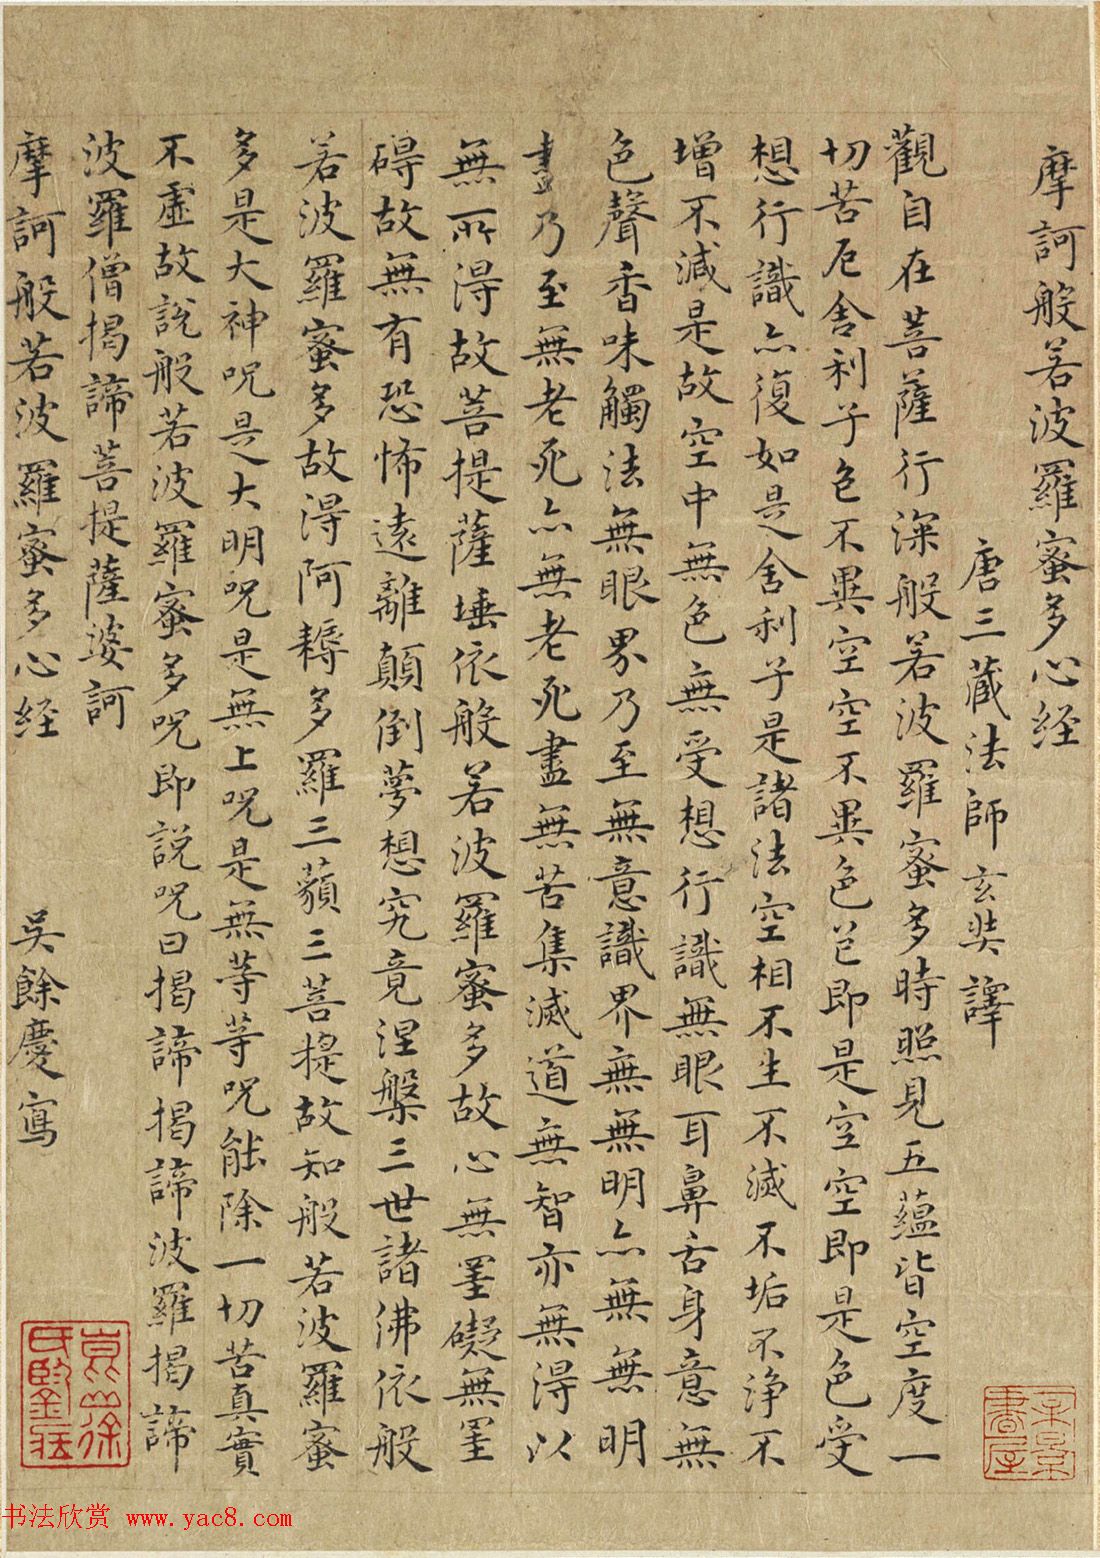 摩訶般若波羅蜜多心経
唐三蔵法師玄奘譯
觀自在菩薩行深般若波羅蜜多時照見五蘊皆空度一
切苦厄舍利子色不異空空不異色色即是空空即是色受
想行識亦復如是舍利子是諸法空相不生不滅不垢不浄不
增不減是故空中無色無受想行識無眼耳鼻舌身意無
色聲香味觸法無眼界乃至無意識界無無明亦無無明
盡乃至無老死亦無老死盡無苦集滅道無智亦無得以
無所得故菩提薩埵依般若波羅蜜多故心無罣礙無罣
碍故無有恐怖遠離顛倒夢想究竟涅槃三世諸佛依般
若波羅蜜多故得阿耨多羅三藐三菩提故知般若波羅蜜
多是大神呪是大明呪是無上呪是無等等呪能除一切苦真實
不虛故說般若波羅蜜多呪即說呪曰揭諦揭諦波羅揭諦
波羅僧揭諦菩提薩婆訶
摩訶般若波羅蜜多心経 吳餘慶寫
书法欣赏 www.yac8.com